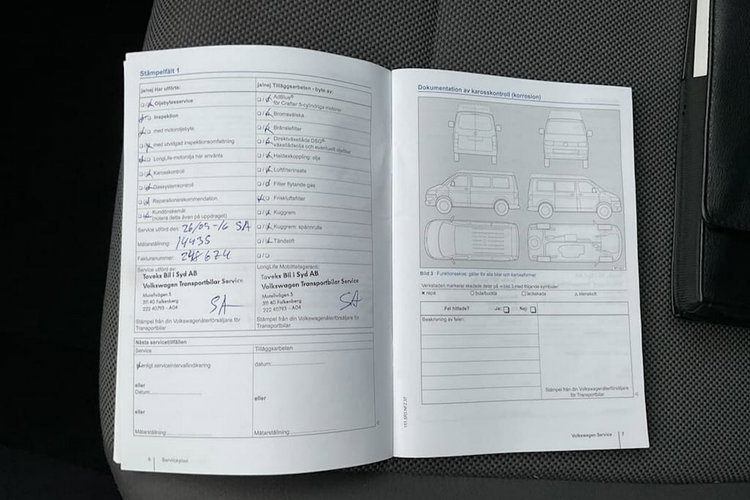 Stämpelfält 1
ja/nej Har utförts:
Oljebytesservice
Inspektion
med motoroljebyte
med utvidgad inspektionsomfattning
LongLife-motorolja har använts
Karosskontroll
Gassystemkontroll
Reparationsrekommendation
Kundönskemål
(notera detta även på uppdraget)
Service utförd den: 26/05-16 SA
Mätarställning: 14435
Fakturanummer:
Service utförd av:
Toveks Bil i Syd AB
Volkswagen Transportbilar Service
311 40 Falkenberg
SA
Stämpel från din Volkswagenåterförsäljare för
Transportbilar
ja/nej Tilläggsarbeten - byte av:
AdBlue®
för Crafter 5-cylindriga motorer
Bromsvätska
Bränslefilter
Haldexkoppling: olja
Luftfilterinsats
Filter flytande gas
Friskluftsfilter
Kuggrem
Kuggrem: spännrulle
Tändstift
LongLife Mobilitetsgaranti:
Toveks Bil i Syd AB
Volkswagen Transportbilar Service
311 40 Falkenberg
SA
Stämpel från din Volkswagenåterförsäljare för
Transportbilar
Nästa servicetillfällen
Service
enligt serviceintervallindikering
eller
Datum:
eller
Mätarställning:
Tilläggsarbeten
datum:
eller
Mätarställning:
6 Serviceplan
Dokumentation av karosskontroll (korrosion)
Bild 3 Funktionsskiss: gäller för alla bilar och karossformer
Verkstaden markerar skadade delar → bild 3 med följande symboler:
x repa
o bula/buckla
Fel hittade? Ja: Nej:
Beskrivning av felen:
Stämpel från din Volkswagenåterförsäljare
för Transportbilar
Volkswagen Service 7